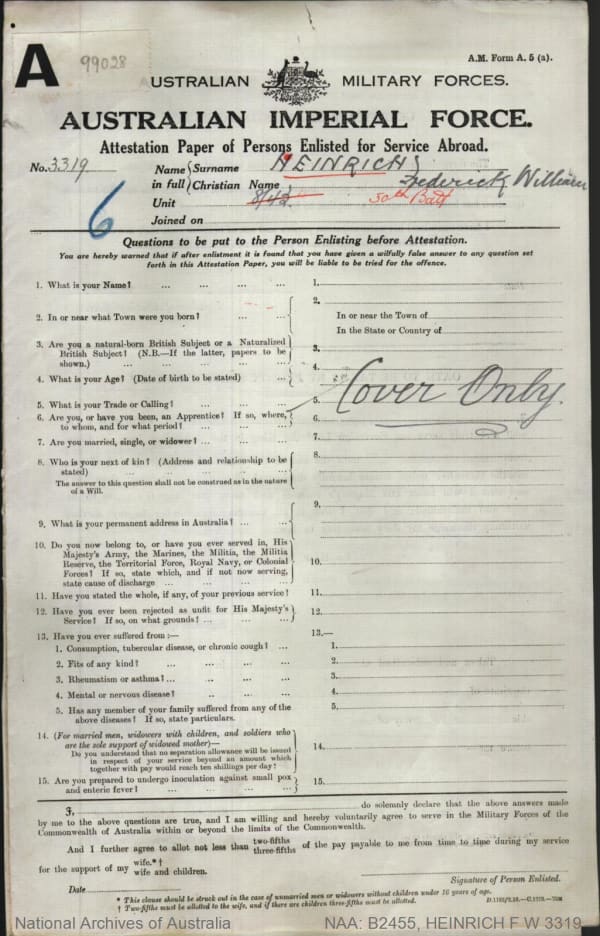 A
99028
AUSTRALIAN MILITARY FORCES.
A.M. Form A. 5 (a).
AUSTRALIAN IMPERIAL FORCE.
Attestation Paper of Persons Enlisted for Service Abroad.
No. 3319 Name in full { Surname HEINRICH
Christian Name Frederick William
Unit 8/43 50th Batt
Joined on
6
Questions to be put to the Person Enlisting before Attestation.
You are hereby warned that if after enlistment it is found that you have given a wilfully false answer to any question set
forth in this Attestation Paper, you will be liable to be tried for the offence.
1. What is your Name? ... ... ... ... 1.
2. In or near what Town were you born? ... ... 2.
In or near the Town of
In the State or Country of
3. Are you a natural-born British Subject or a Naturalized
British Subject? (N.B.—If the latter, papers to be
shown.) ... ... ... ... ... 3.
4. What is your Age? (Date of birth to be stated) ... 4.
5. What is your Trade or Calling? ... ... ... 5.
Cover Only.
6. Are you, or have you been, an Apprentice? If so, where,
to whom, and for what period? ... ... ... 6.
7. Are you married, single, or widower? ... ... ... 7.
8. Who is your next of kin? (Address and relationship to be
stated) ... ... ... ... 8.
The answer to this question shall not be construed as in the nature
of a Will.
9. What is your permanent address in Australia? ... ... 9.
10. Do you now belong to, or have you ever served in, His
Majesty's Army, the Marines, the Militia, the Militia
Reserve, the Territorial Force, Royal Navy, or Colonial
Forces? If so, state which, and if not now serving,
state cause of discharge ... ... ... ... 10.
11. Have you stated the whole, if any, of your previous service? 11.
12. Have you ever been rejected as unfit for His Majesty's
Service? If so, on what grounds? ... ... ... 12.
13. Have you ever suffered from :— 13.—
1. Consumption, tubercular disease, or chronic cough? ... 1.
2. Fits of any kind? ... ... ... ... 2.
3. Rheumatism or asthma? ... ... ... ... 3.
4. Mental or nervous disease? ... ... ... 4.
5. Has any member of your family suffered from any of the
above diseases? If so, state particulars. 5.
14. (For married men, widowers with children, and soldiers who
are the sole support of widowed mother)—
Do you understand that no separation allowance will be issued
in respect of your service beyond an amount which
together with pay would reach ten shillings per day? 14.
15. Are you prepared to undergo inoculation against small pox
and enteric fever? ... ... ... ... 15.
I, do solemnly declare that the above answers made
by me to the above questions are true, and I am willing and hereby voluntarily agree to serve in the Military Forces of the
Commonwealth of Australia within or beyond the limits of the Commonwealth.
And I further agree to allot not less than two-fifths three-fifths of the pay payable to me from time to time during my service
for the support of my wife.*† wife and children.
Signature of Person Enlisted.
Date
* This clause should be struck out in the case of unmarried men or widowers without children under 16 years of age.
† Two-fifths must be allotted to the wife, and if there are children three-fifths must be allotted.
National Archives of Australia
NAA: B2455, HEINRICH F W 3319